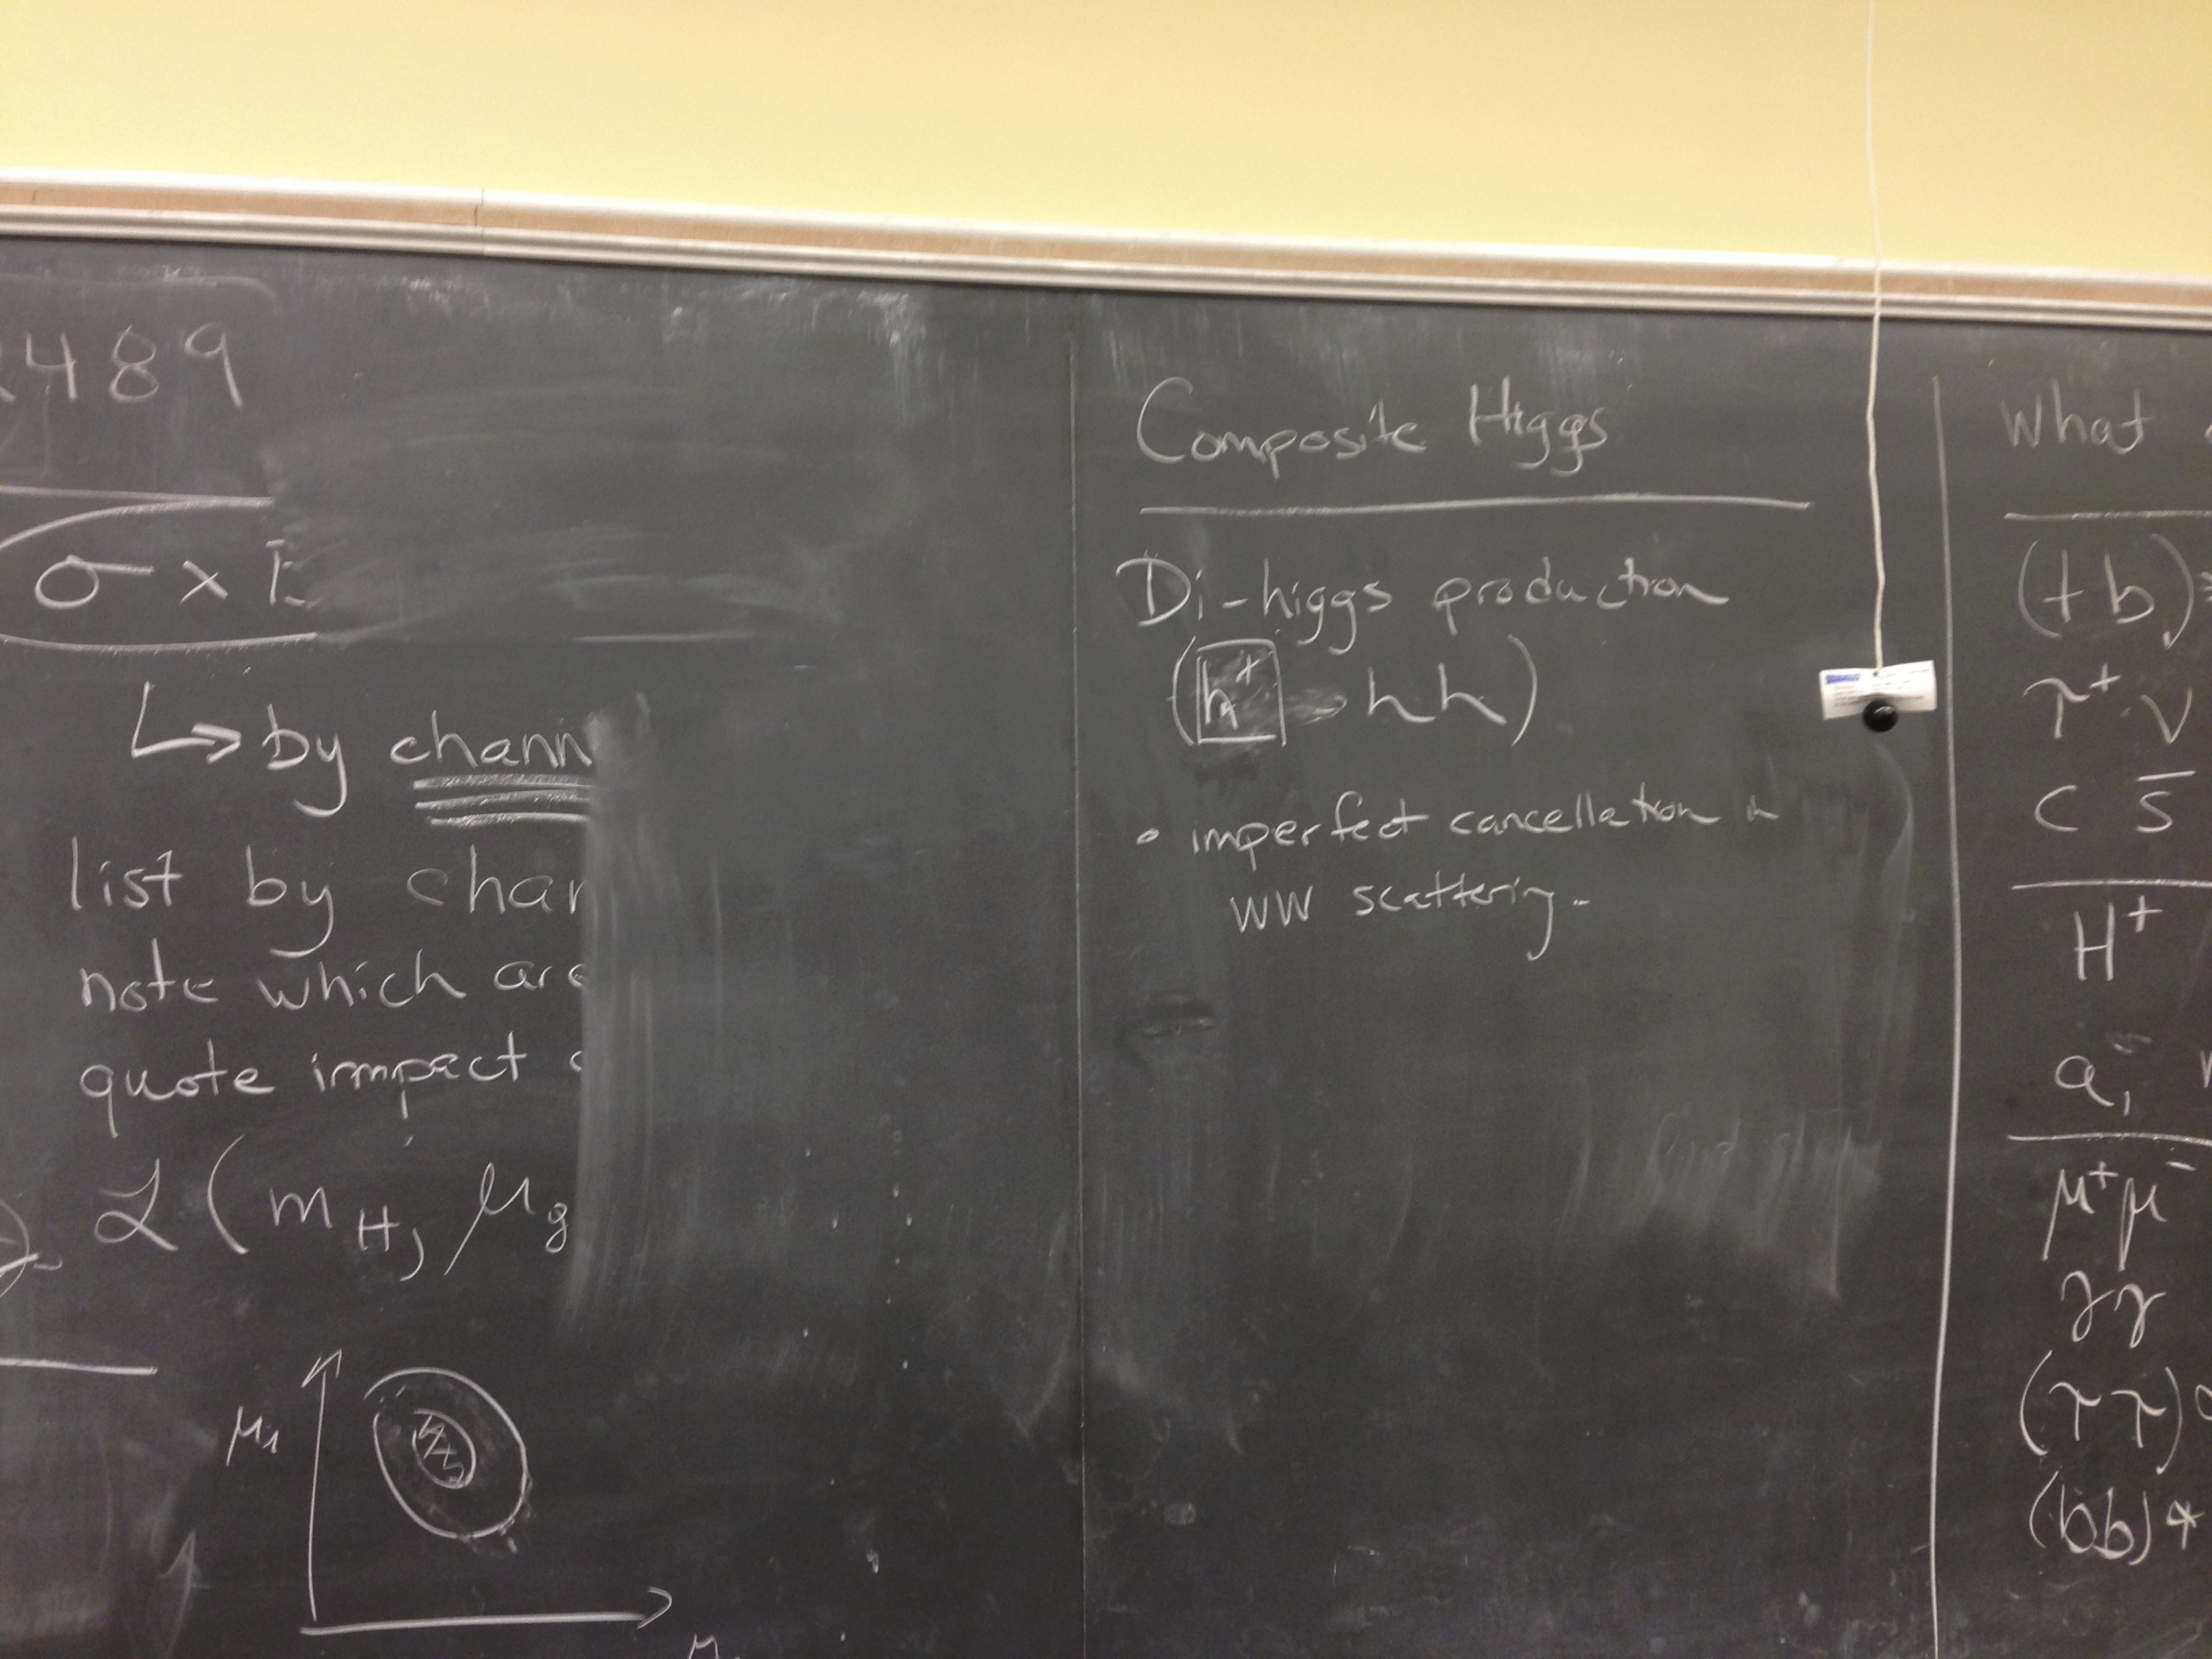 489
σ ×
↳ by chann
list by char
note which are
quote impact
ℒ ( m_H, μ_g
μ_1
Composite Higgs
Di-higgs production
( h hh )
• imperfect cancellation in
WW scattering.
What
(t b)
τ⁺ ν
c s̄
H⁺
a₁
μ⁺μ⁻
γγ
(ττ)
(bb)*